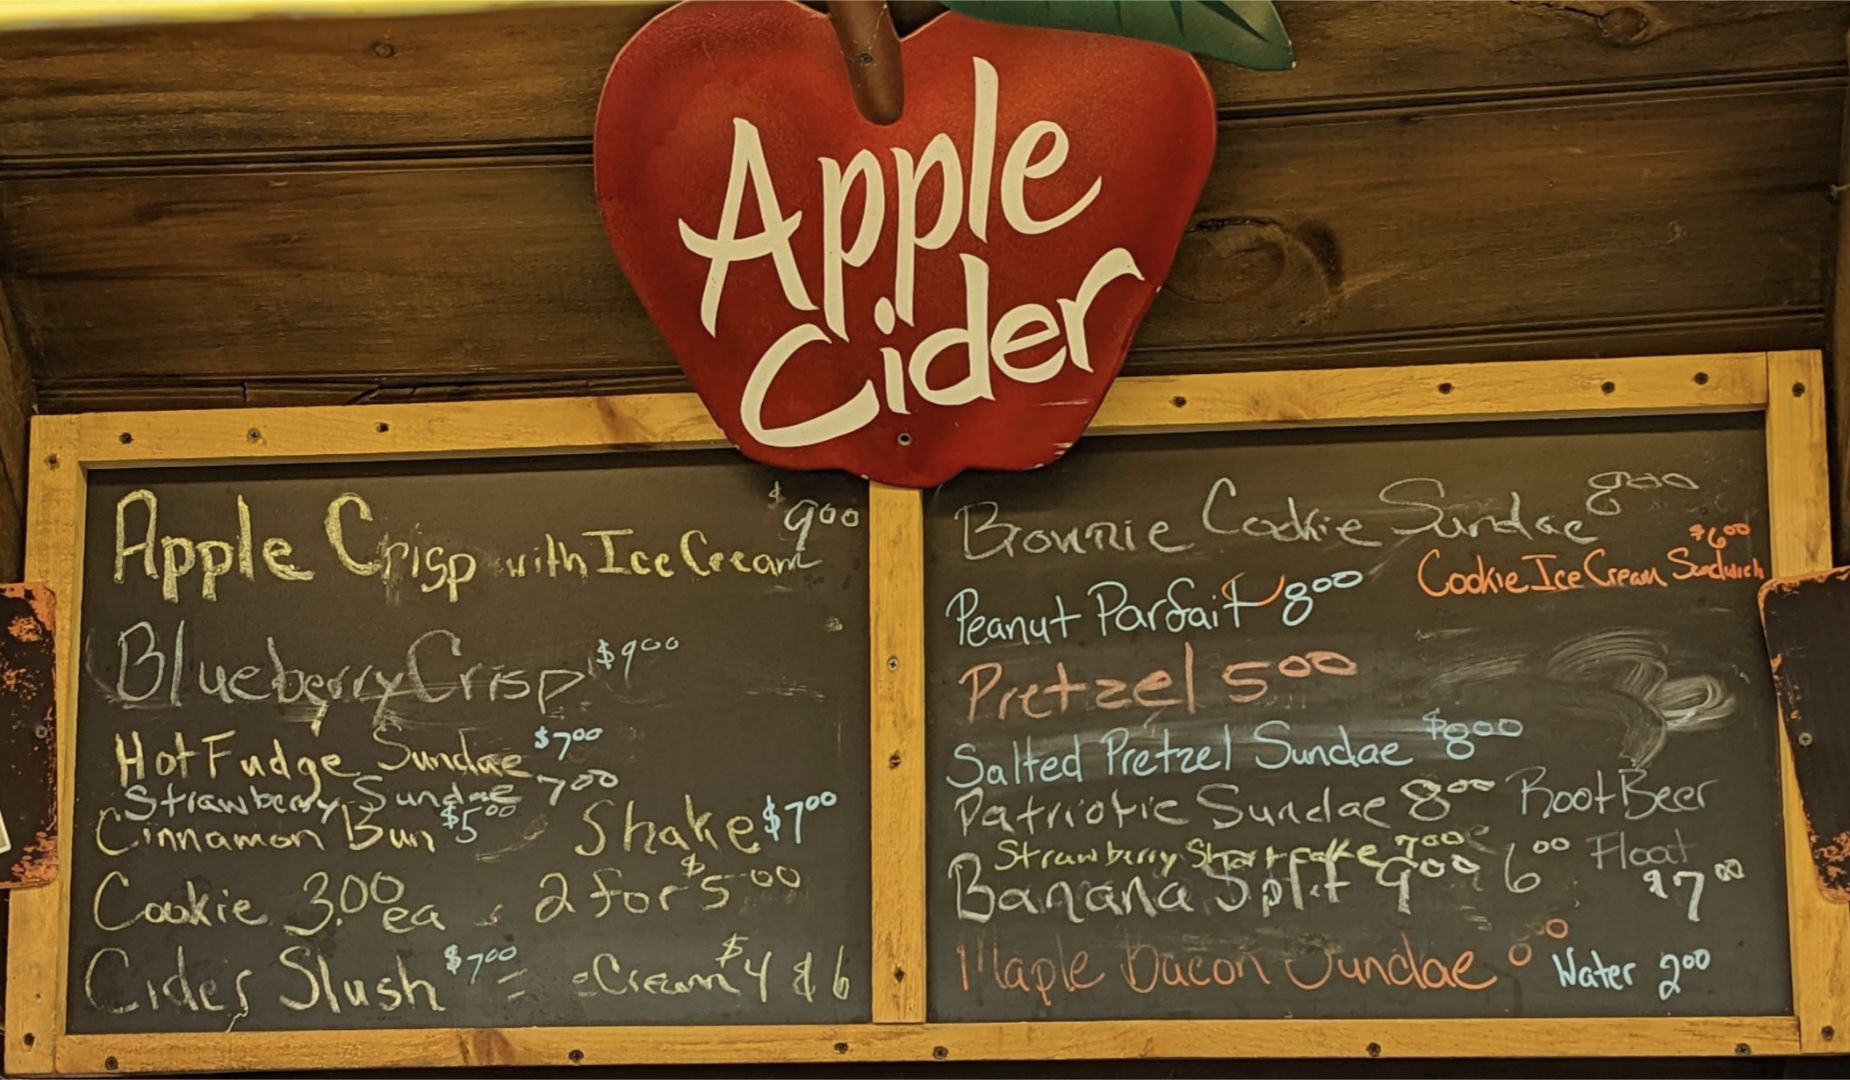 Apple
Cider
Apple Crisp with Ice Cream $900
Blueberry Crisp $900
Hot Fudge Sundae $700
Strawberry Sundae 700
Cinnamon Bun $500
Shake $700
Cookie 3.00 ea 2 for $5.00
Cider Slush $700
Cream $4 & 6
Brownie Cookie Sundae 800
Cookie Ice Cream Sandwich $600
Peanut Parfait 800
Pretzel 500
Salted Pretzel Sundae $800
Patriotic Sundae 800
Root Beer
Float
600 $700
Strawberry Shortcake 700
Banana Split 900
Maple Bacon Sundae
Water 200